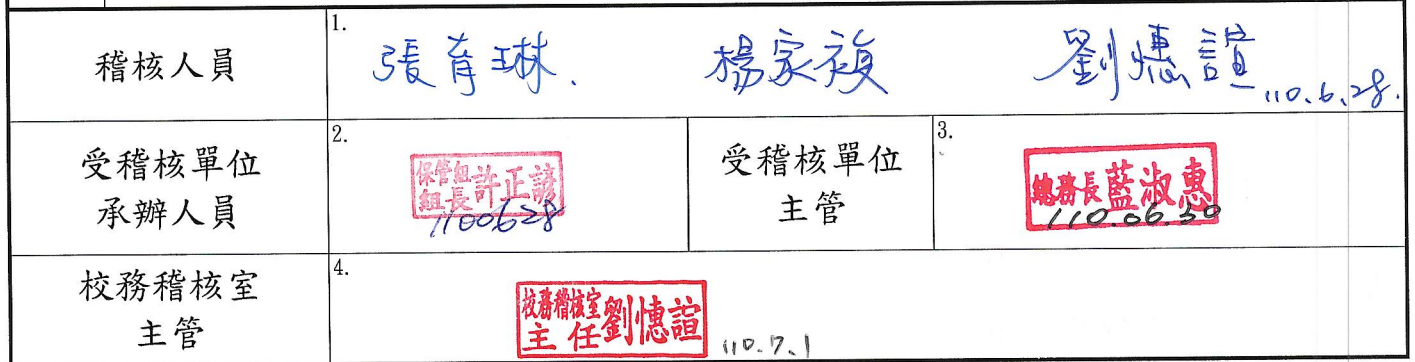 稽核人員
1.
張育琳. 楊家複 劉憓諠 110.6.28.
受稽核單位
承辦人員
2.
保管組
組長許正諺
1100628
受稽核單位
主管
3.
總務長藍淑惠
110.06.30
校務稽核室
主管
4.
校務稽核室
主任劉憓諠
110.7.1